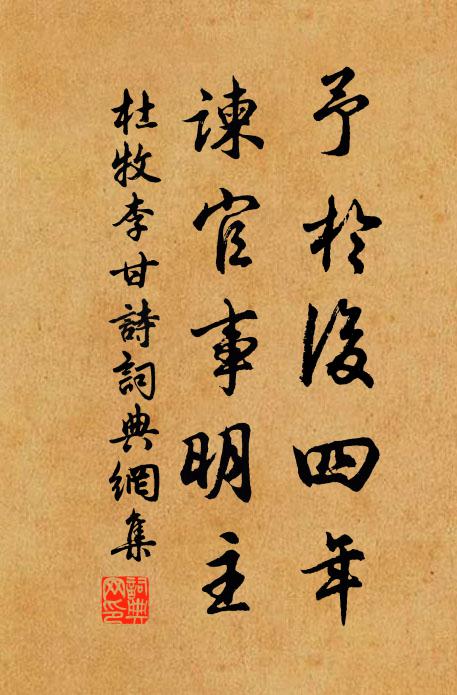 予於後四年
諫官事明主
杜牧李甘詩詞典網集
詞典網印